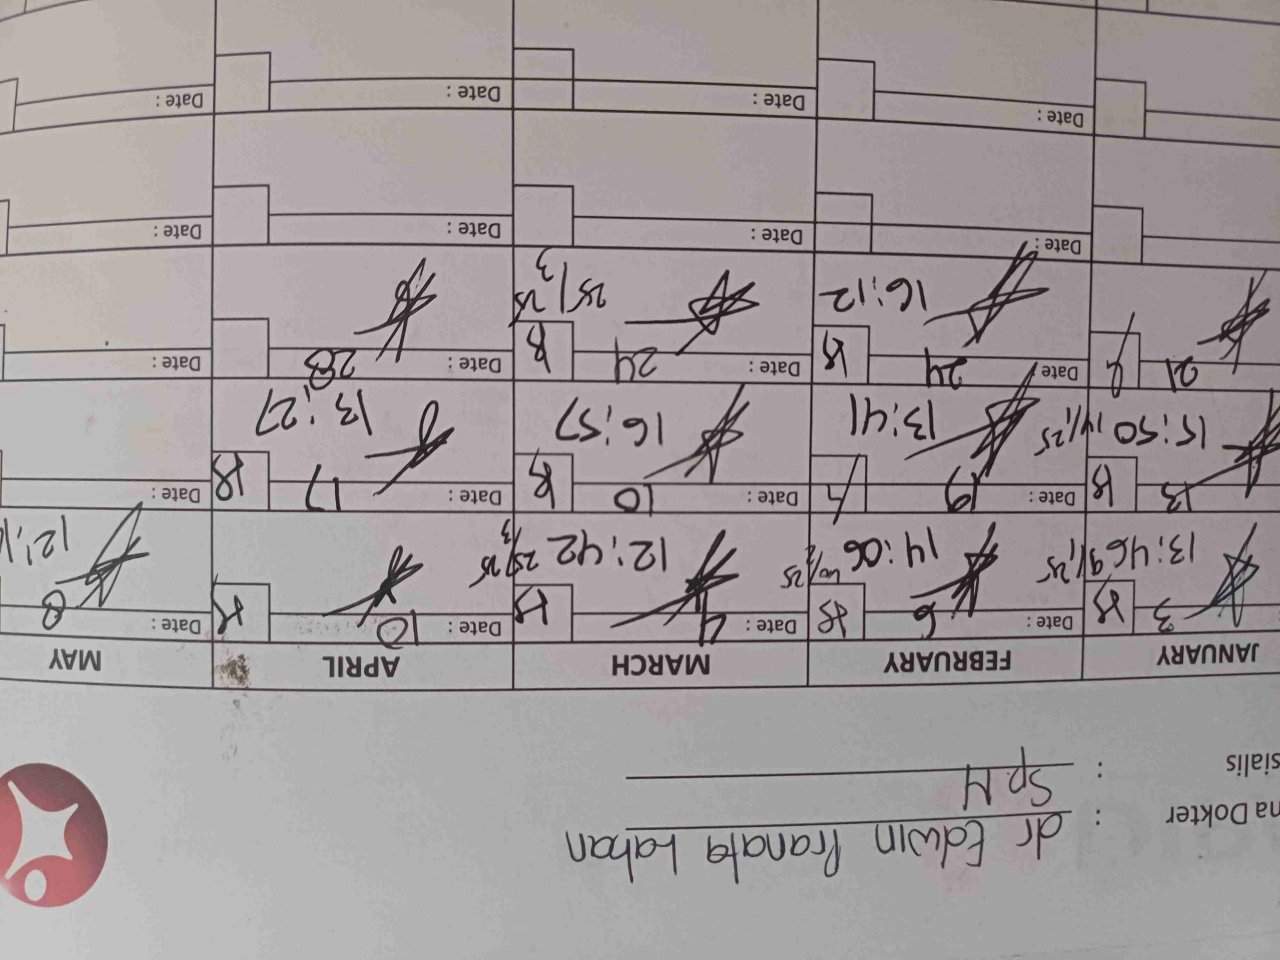 na Dokter : dr Edwin Pranata Lahan
sialis : Sp.N
JANUARY FEBRUARY MARCH APRIL MAY
3 Date : 6 Date : 4 Date : 10 Date : 8
13:46 9/1/25 14:06 10/2/25 12:42 25/3/25 12:1
13 Date : 19 Date : 10 Date : 17 Date :
15:50 14/1/25 13:41 16:57 13:27
21 Date 24 Date : 24 Date : 28 Date :
16:12 25/3/25
Date : Date : Date : Date :
Date : Date : Date : Date :